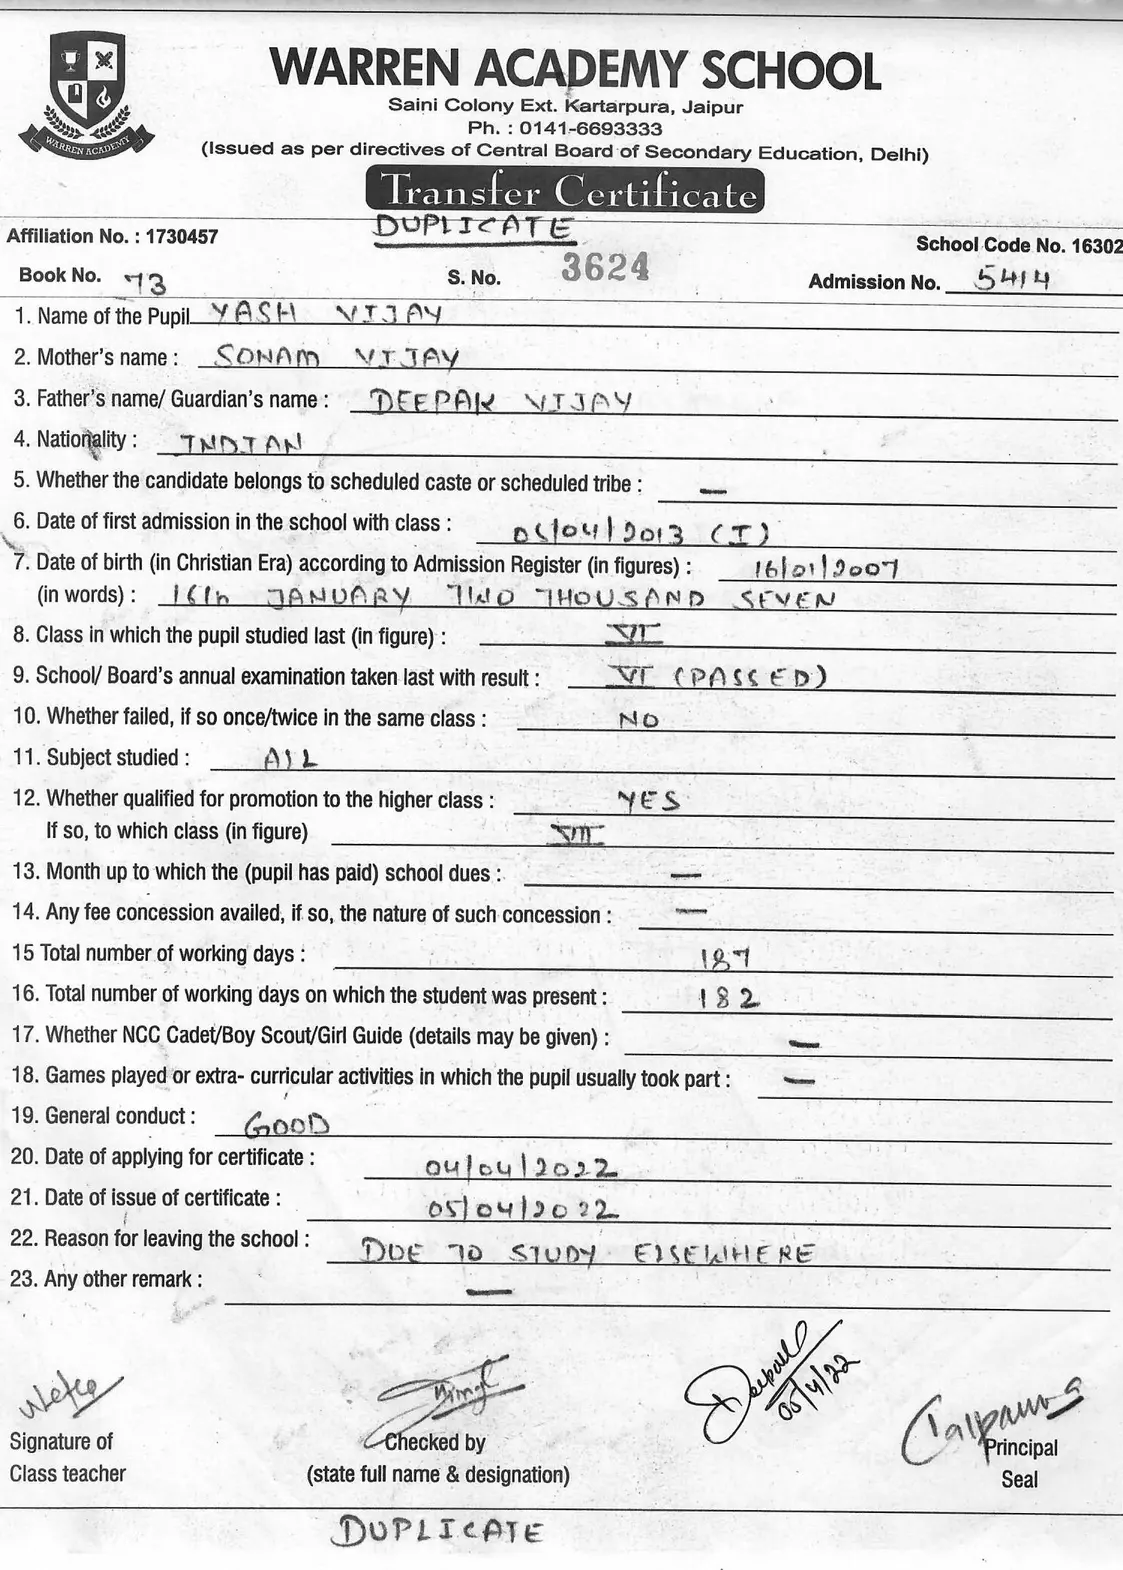 WARREN ACADEMY SCHOOL
Saini Colony Ext. Kartarpura, Jaipur
Ph. : 0141-6693333
(Issued as per directives of Central Board of Secondary Education, Delhi)
WARREN ACADEMY
Transfer Certificate
DUPLICATE
Affiliation No. : 1730457 School Code No. 16302
Book No. 73 S. No. 3624 Admission No. 5414
1. Name of the Pupil YASH VIJAY
2. Mother's name : SONAM VIJAY
3. Father's name/ Guardian's name : DEEPAK VIJAY
4. Nationality : INDIAN
5. Whether the candidate belongs to scheduled caste or scheduled tribe : —
6. Date of first admission in the school with class : /04/2013 (I)
7. Date of birth (in Christian Era) according to Admission Register (in figures) : 16/01/2007
(in words) : 16th JANUARY TWO THOUSAND SEVEN
8. Class in which the pupil studied last (in figure) : VI
9. School/ Board's annual examination taken last with result : VI (PASSED)
10. Whether failed, if so once/twice in the same class : NO
11. Subject studied : ALL
12. Whether qualified for promotion to the higher class : YES
If so, to which class (in figure) VII
13. Month up to which the (pupil has paid) school dues : —
14. Any fee concession availed, if so, the nature of such concession : —
15 Total number of working days : 187
16. Total number of working days on which the student was present : 182
17. Whether NCC Cadet/Boy Scout/Girl Guide (details may be given) : —
18. Games played or extra- curricular activities in which the pupil usually took part : —
19. General conduct : GOOD
20. Date of applying for certificate : 04/04/2022
21. Date of issue of certificate : 05/04/2022
22. Reason for leaving the school : DUE TO STUDY ELSEWHERE
23. Any other remark : —
05/4/22
Signature of Checked by Principal
Class teacher (state full name & designation) Seal
DUPLICATE